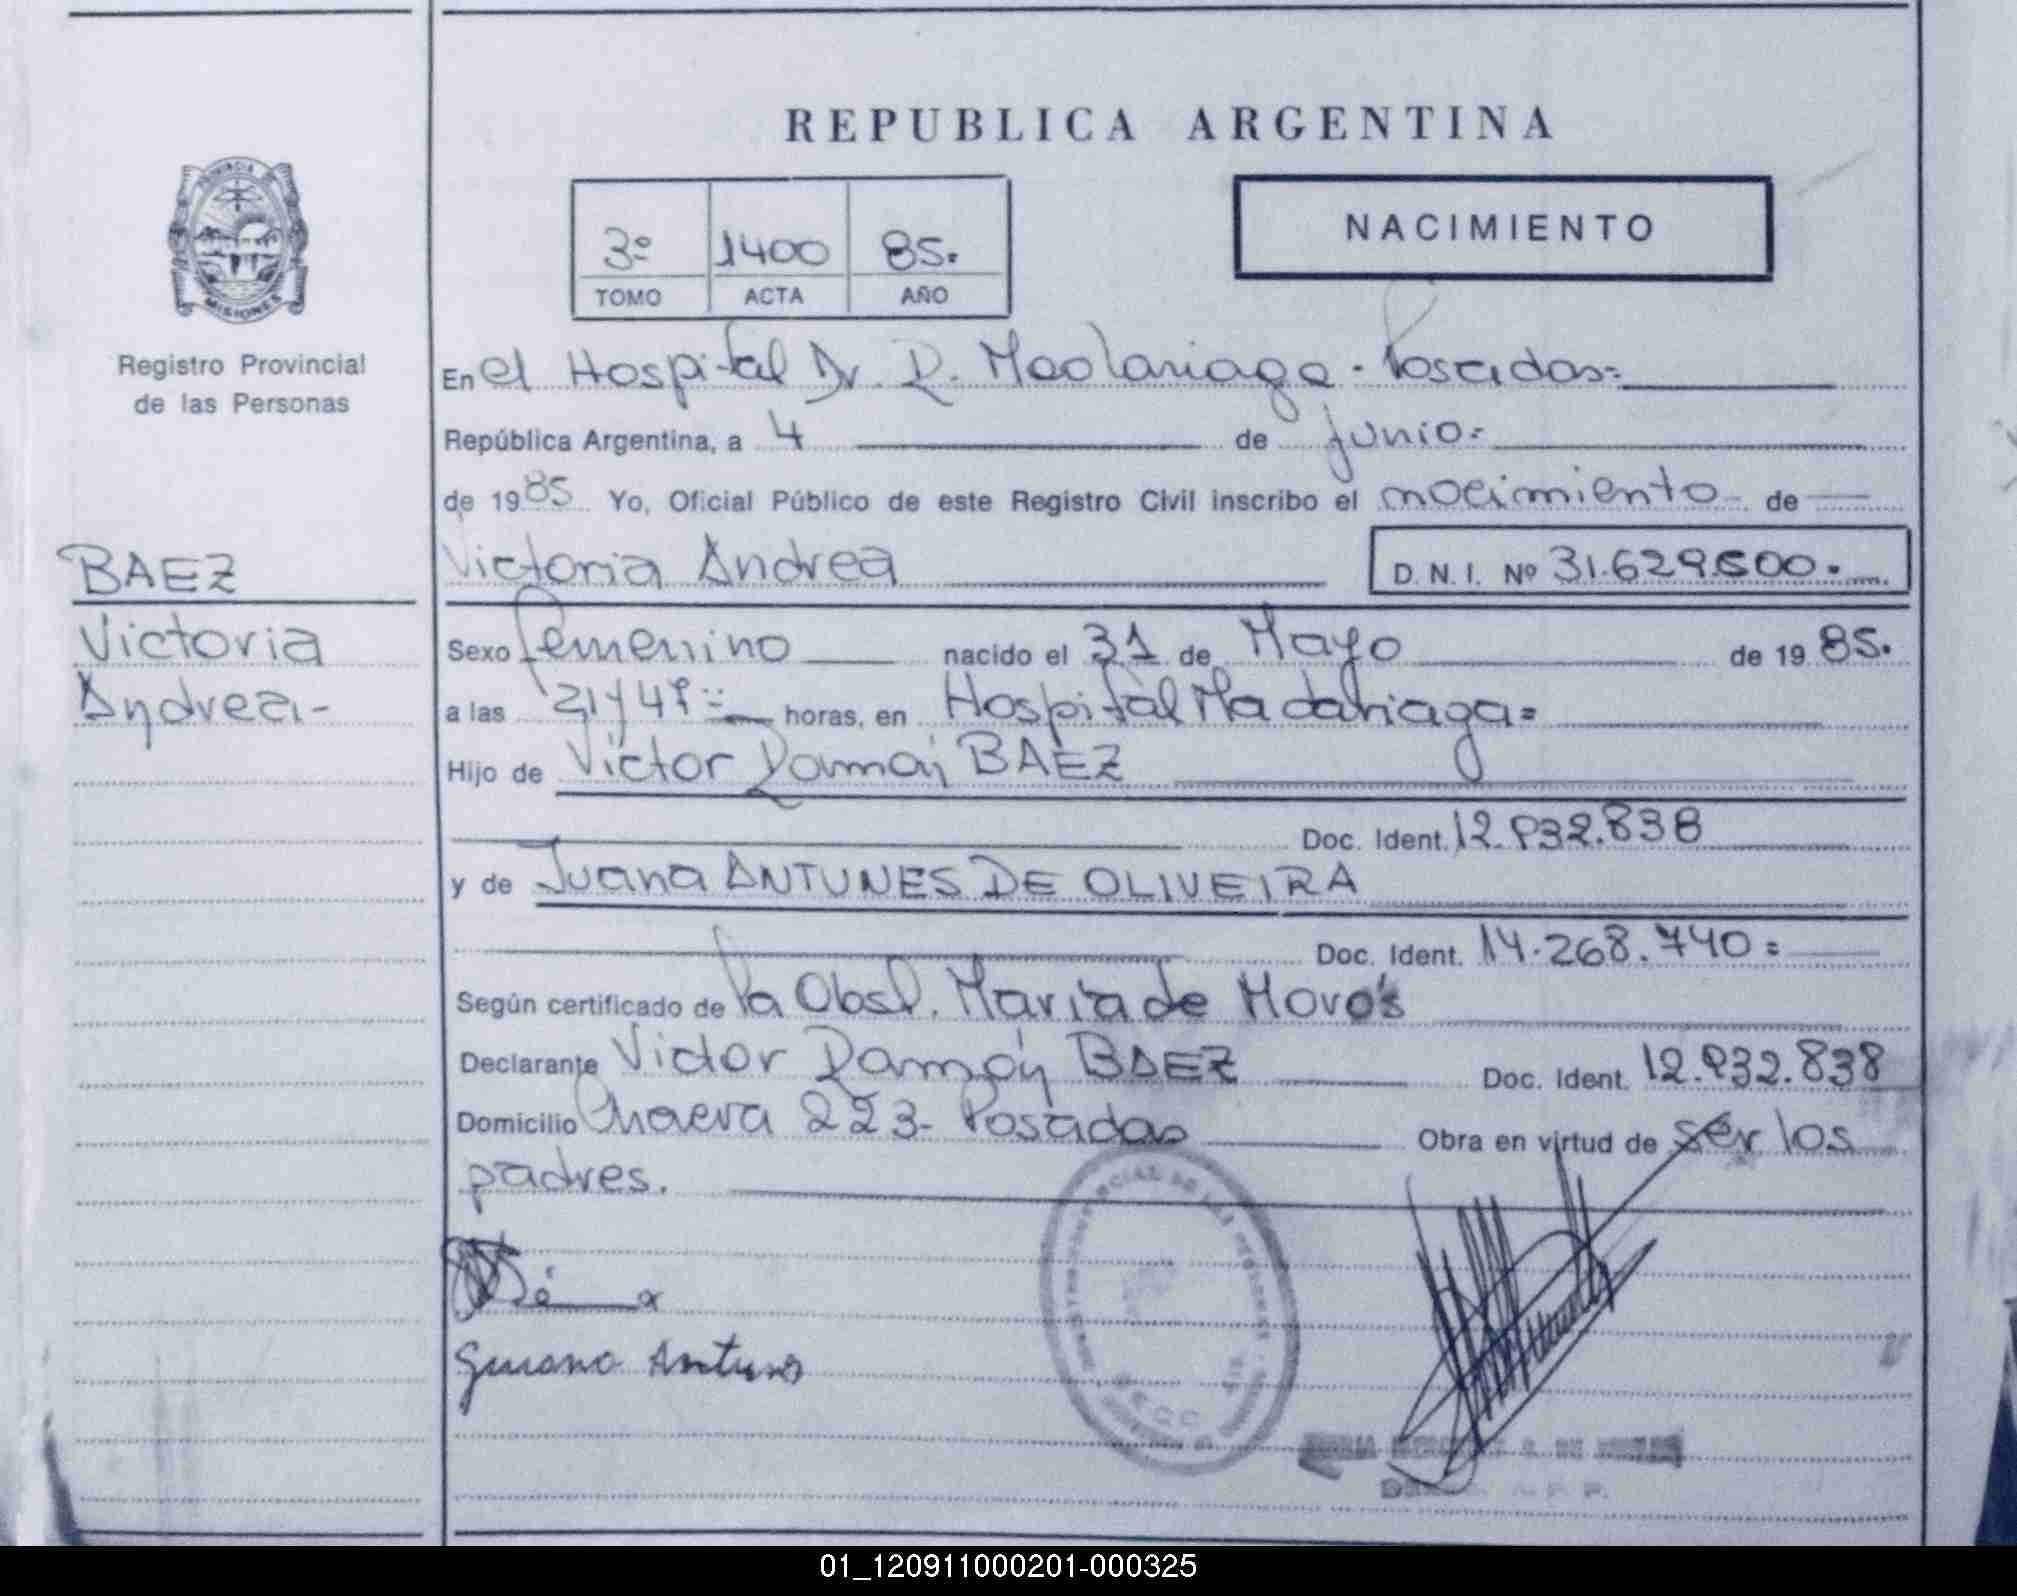 REPUBLICA ARGENTINA
PROVINCIA
MISIONES
Registro Provincial
de las Personas
3º 1400 85.
TOMO ACTA AÑO
NACIMIENTO
En el Hospital Dr. R. Madariaga - Posadas=
República Argentina, a 4 de junio=
de 1985 Yo, Oficial Público de este Registro Civil inscribo el nacimiento de
BAEZ
Victoria
Andrea-
Victoria Andrea D.N.I. Nº 31.629.500.
Sexo femenino nacido el 31 de Mayo de 1985.
a las 21 y 47 = horas, en Hospital Madariaga=
Hijo de Victor Ramón BAEZ
Doc. Ident. 12.932.838
y de Juana ANTUNES DE OLIVEIRA
Doc. Ident. 14.268.740=
Según certificado de la Obst. Maria de
Declarante Victor Ramón BAEZ Doc. Ident. 12.932.838
Domicilio 223- Posadas Obra en virtud de ser los
padres.
Antunes
01_120911000201-000325